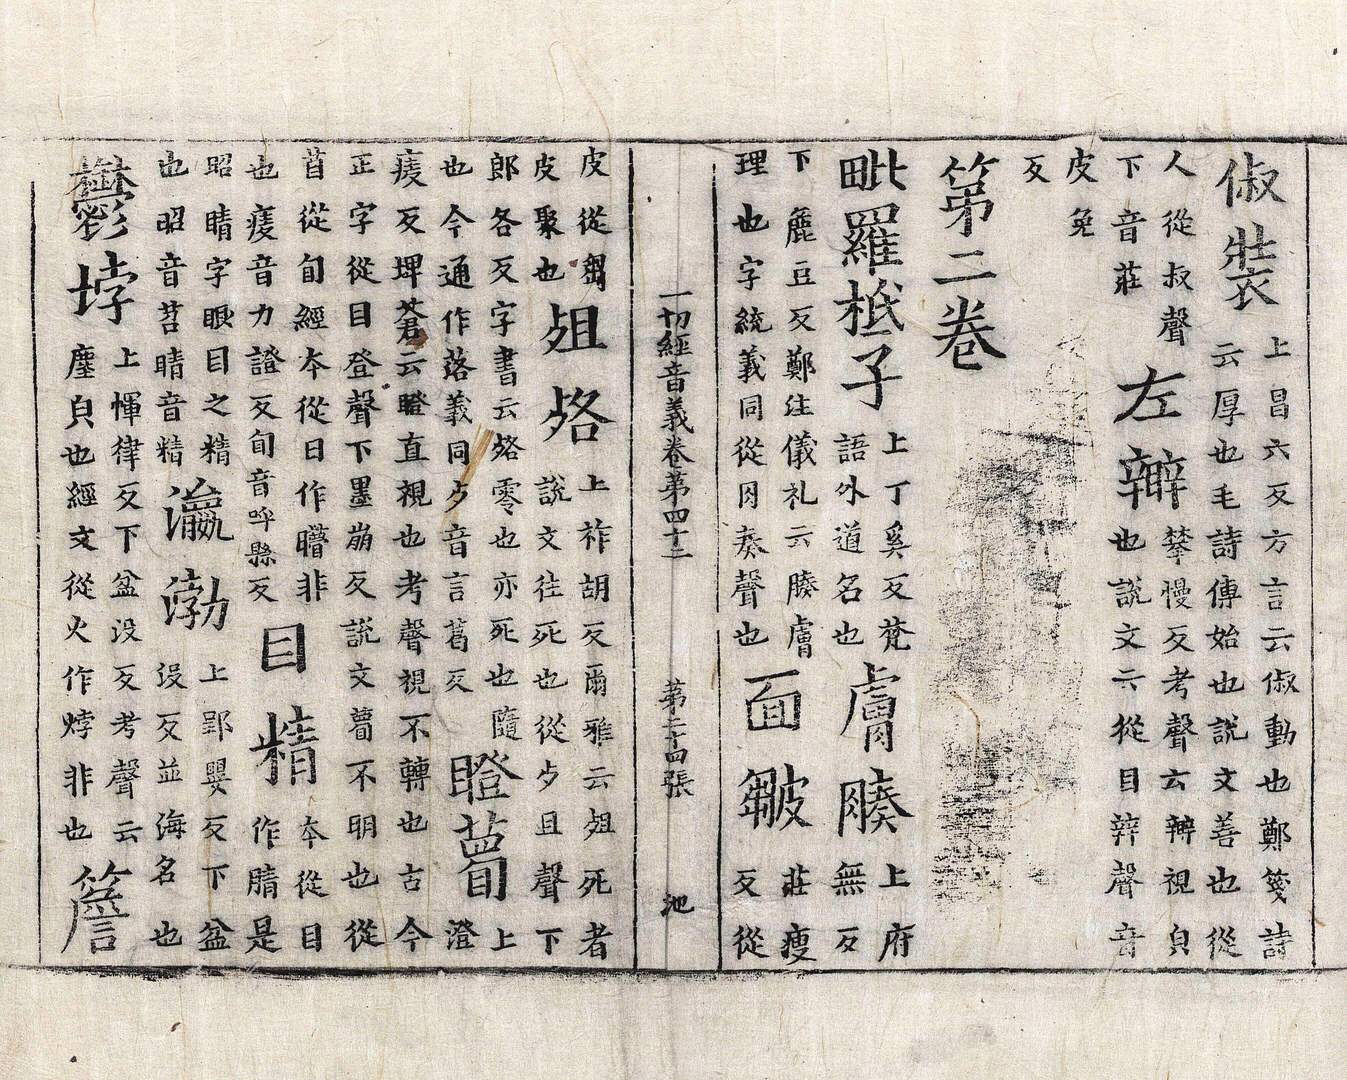 俶裝
上昌六反方言云俶動也鄭箋詩
云厚也毛詩傳始也說文善也從
人從叔聲
下音莊
左辧
攀慢反考聲云辧視皃
也說文云從目辡聲音
皮免
反
第二卷
毗羅柢子
上丁奚反梵
語外道名也
膚腠
上府
無反
下麁豆反鄭注儀礼云腠膚
理也字統義同從肉奏聲也
面皺
莊瘦
反從
一切經音義卷第四十二 第二十四張 池
皮從芻
皮聚也
殂㱠
上祚胡反爾雅云殂死者
說文往死也從歺且聲下
郎各反字書云㱠零也亦死也隨
也今通作落義同歺音言葛反
瞪瞢
上
澄
痿反埤蒼云瞪直視也考聲視不轉也古今
正字從目登聲下墨崩反說文瞢不明也從
苜從旬經本從日作矒非
也痿音力證反旬音呼縣反
目精
本從目
作睛是
昭睛字眼目之精
也昭音苕睛音精
瀛渤
上郢嬰反下盆
沒反並海名也
鬱
上惲律反下盆沒反考聲云
塵皃也經文從火作㶿非也
簷